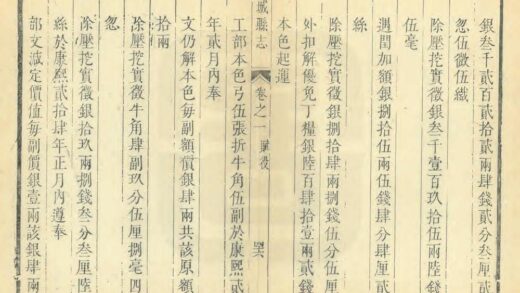 銀叁千貳百貳拾貳兩肆錢貳分叁厘貳
忽伍微伍纖
除壓挖實徵銀叁千壹百玖拾伍兩陸錢
伍毫
週閏加額銀捌拾伍兩伍錢肆分肆厘貳
絲
除壓挖實徵銀捌拾肆兩捌錢伍分叁厘
外扣解優免丁糧銀陸百肆拾壹兩貳錢
本色起運
城縣志 卷之一 賦役
工部本色弓伍張折牛角伍副於康熙貳
年貳月內奉
文仍解本色每副額價銀肆兩共該原額
拾兩
除壓挖實徵牛角肆副玖分伍厘捌毫四
忽
除壓挖實徵銀拾玖兩捌錢叁分叁厘陸
絲於康熙貳拾肆年正月內遵奉
部文減定價值每副價銀壹兩該銀肆兩